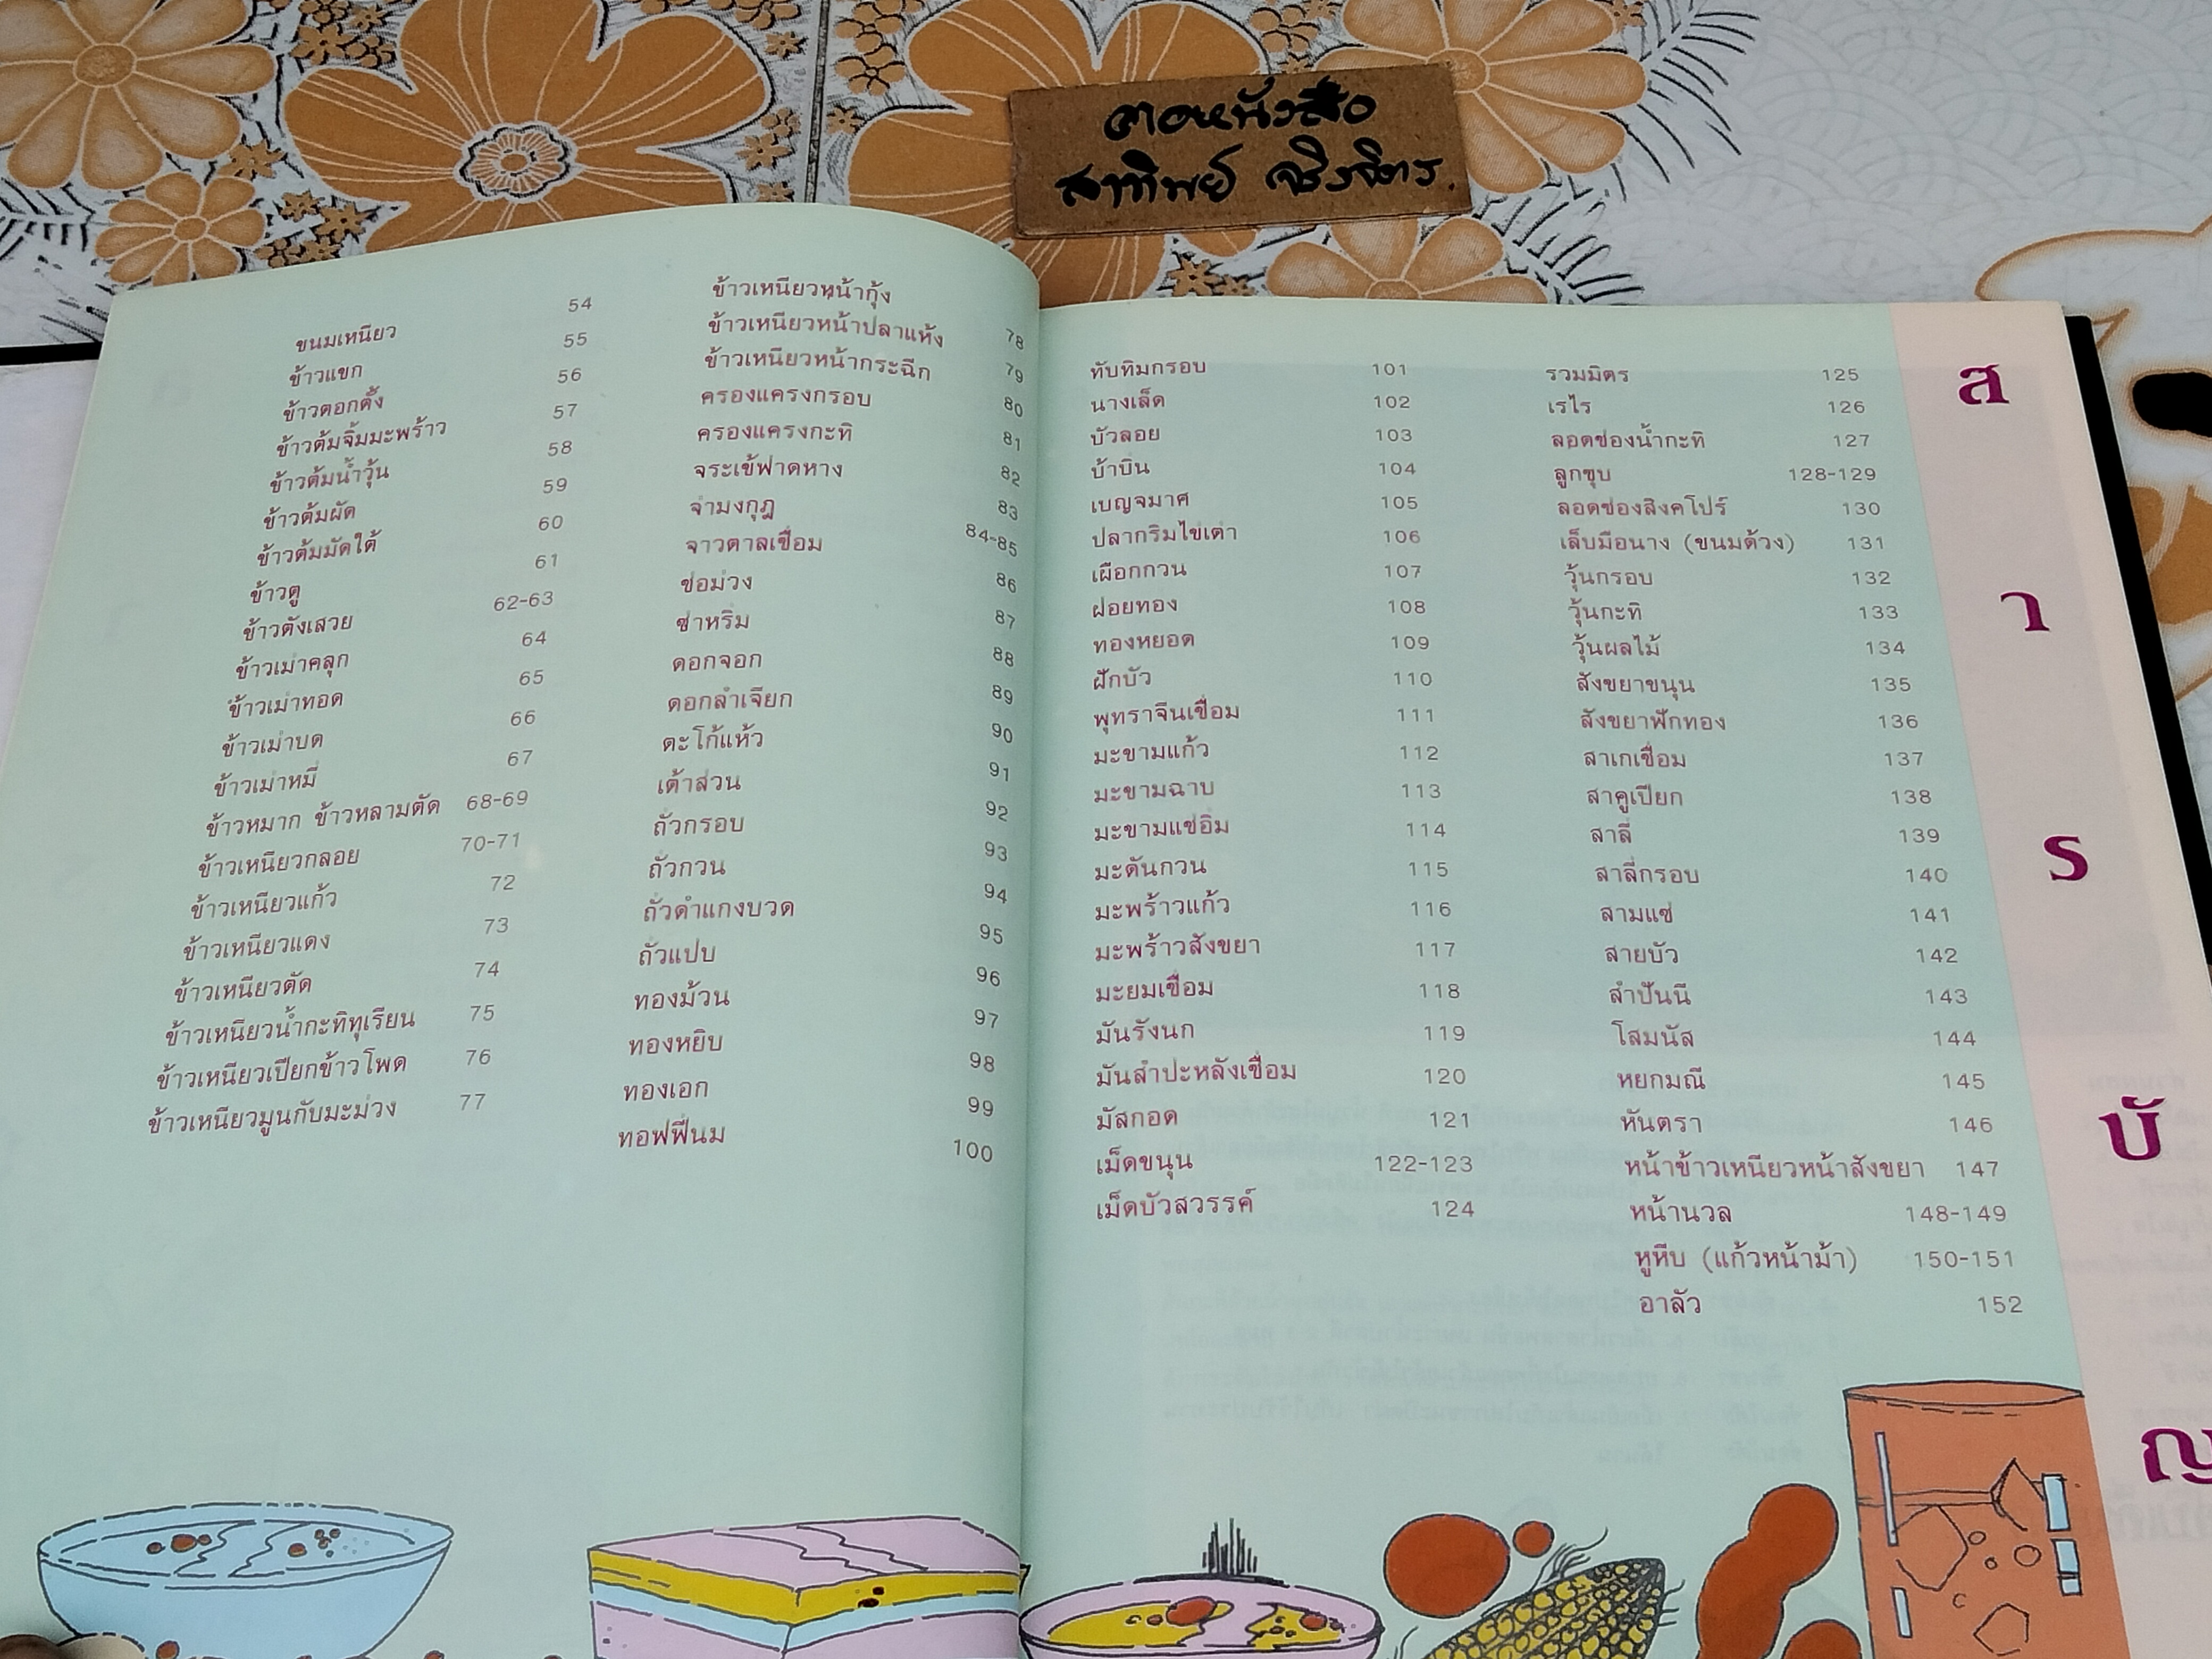 ฅอหนังสือ
สาทิพย์ จิรจิตร.
ขนมเหนียว 54
ข้าวแขก 55
ข้าวตอกตั้ง 56
ข้าวต้มจิ้มมะพร้าว 57
ข้าวต้มน้ำวุ้น 58
ข้าวต้มผัด 59
ข้าวต้มมัดใต้ 60
ข้าวตู 61
ข้าวตังเสวย 62-63
ข้าวเม่าคลุก 64
ข้าวเม่าทอด 65
ข้าวเม่าบด 66
ข้าวเม่าหมี่ 67
ข้าวหมาก ข้าวหลามตัด 68-69
ข้าวเหนียวกลอย 70-71
ข้าวเหนียวแก้ว 72
ข้าวเหนียวแดง 73
ข้าวเหนียวตัด 74
ข้าวเหนียวน้ำกะทิทุเรียน 75
ข้าวเหนียวเปียกข้าวโพด 76
ข้าวเหนียวมูนกับมะม่วง 77
ข้าวเหนียวหน้ากุ้ง 78
ข้าวเหนียวหน้าปลาแห้ง 79
ข้าวเหนียวหน้ากระฉีก 80
ครองแครงกรอบ 81
ครองแครงกะทิ 82
จระเข้ฟาดหาง 83
จ่ามงกุฎ 84-85
จาวตาลเชื่อม 86
ช่อม่วง 87
ซ่าหริ่ม 88
ดอกจอก 89
ดอกลำเจียก 90
ตะโก้แห้ว 91
เต้าส่วน 92
ถั่วกรอบ 93
ถั่วกวน 94
ถั่วดำแกงบวด 95
ถั่วแปบ 96
ทองม้วน 97
ทองหยิบ 98
ทองเอก 99
ทอฟฟี่นม 100
ทับทิมกรอบ 101
นางเล็ด 102
บัวลอย 103
บ้าบิ่น 104
เบญจมาศ 105
ปลากริมไข่เต่า 106
เผือกกวน 107
ฝอยทอง 108
ทองหยอด 109
ฝักบัว 110
พุทราจีนเชื่อม 111
มะขามแก้ว 112
มะขามฉาบ 113
มะขามแช่อิ่ม 114
มะดันกวน 115
มะพร้าวแก้ว 116
มะพร้าวสังขยา 117
มะยมเชื่อม 118
มันรังนก 119
มันสำปะหลังเชื่อม 120
มัสกอด 121
เม็ดขนุน 122-123
เม็ดบัวสวรรค์ 124
รวมมิตร 125
เรไร 126
ลอดช่องน้ำกะทิ 127
ลูกชุบ 128-129
ลอดช่องสิงคโปร์ 130
เล็บมือนาง (ขนมด้วง) 131
วุ้นกรอบ 132
วุ้นกะทิ 133
วุ้นผลไม้ 134
สังขยาขนุน 135
สังขยาฟักทอง 136
สาเกเชื่อม 137
สาคูเปียก 138
สาลี่ 139
สาลี่กรอบ 140
สามแซ่ 141
สายบัว 142
สำปันนี 143
โสมนัส 144
หยกมณี 145
หันตรา 146
หน้าข้าวเหนียวหน้าสังขยา 147
หน้านวล 148-149
หูหีบ (แก้วหน้าม้า) 150-151
อาลัว 152
ส
า
ร
บั
ญ